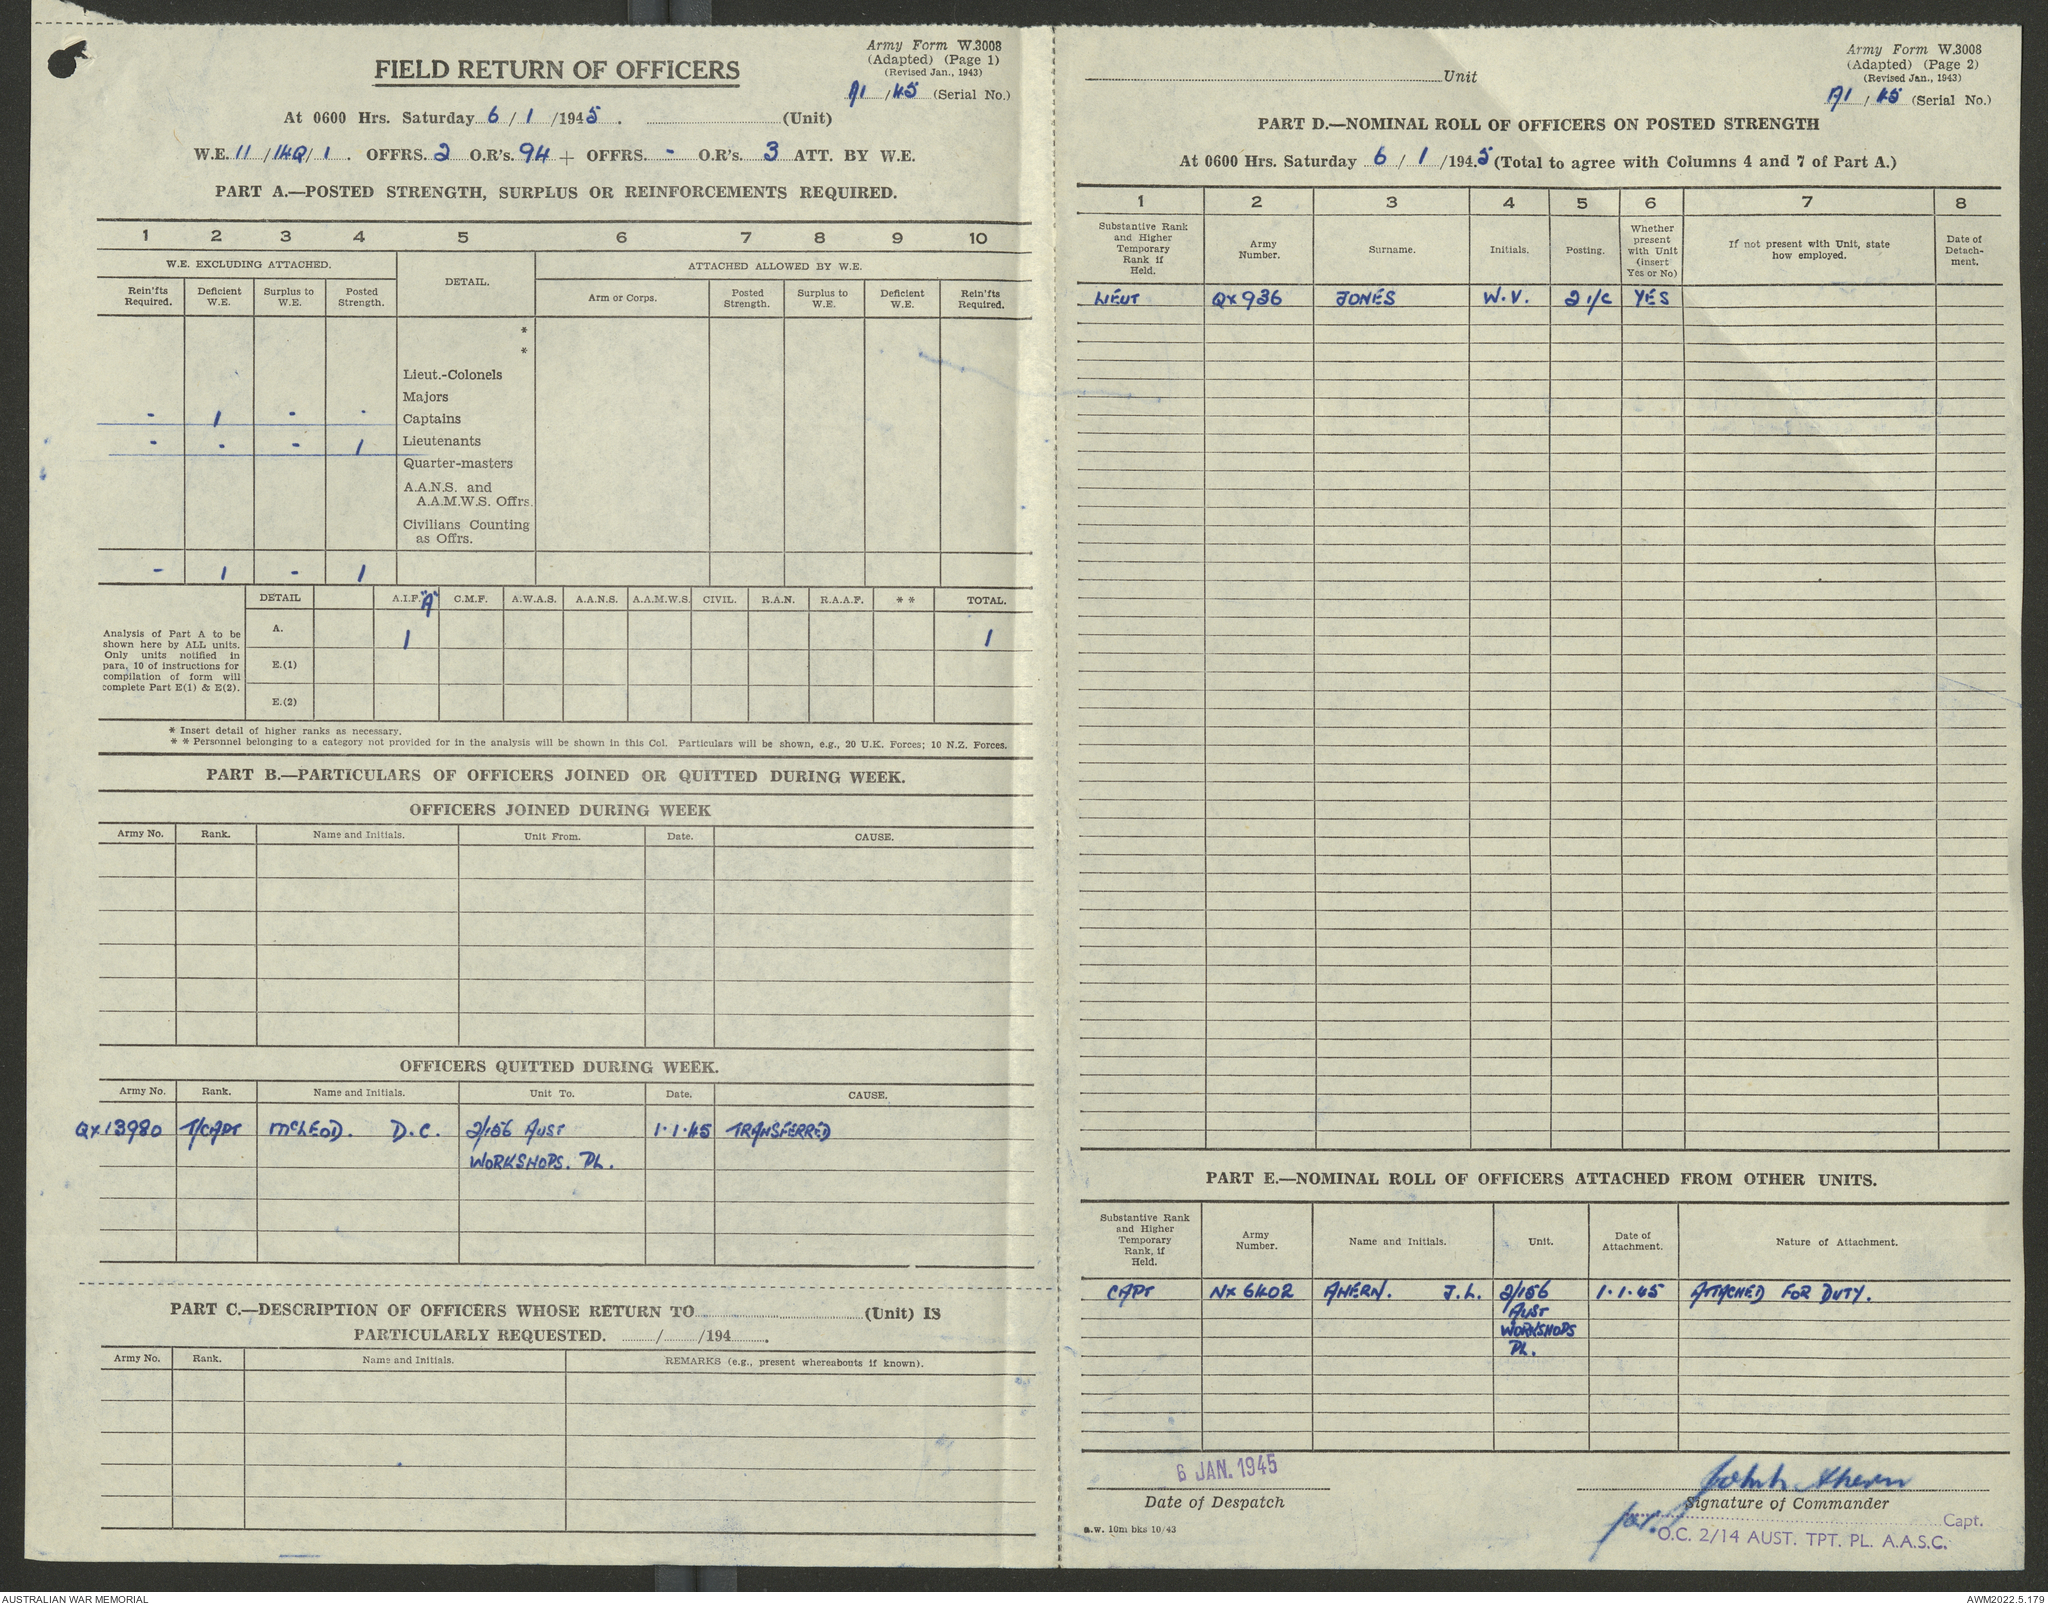 Army Form W.3008
(Adapted) (Page 1)
(Revised Jan., 1943)
FIELD RETURN OF OFFICERS
A1 / 45 (Serial No.)
At 0600 Hrs. Saturday 6 / 1 /1945 . (Unit)
W.E. 11 /14Q/ 1 . OFFRS. 2 O.R's. 94 + OFFRS. - O.R's. 3 ATT. BY W.E.
PART A.—POSTED STRENGTH, SURPLUS OR REINFORCEMENTS REQUIRED.
1 2 3 4 5 6 7 8 9 10
W.E. EXCLUDING ATTACHED. DETAIL. ATTACHED ALLOWED BY W.E.
Rein'fts Required. Deficient W.E. Surplus to W.E. Posted Strength. Arm or Corps. Posted Strength. Surplus to W.E. Deficient W.E. Rein'fts Required.
*
*
Lieut.-Colonels
Majors
- 1 - - Captains
- - - 1 Lieutenants
Quarter-masters
A.A.N.S. and
A.A.M.W.S. Offrs.
Civilians Counting
as Offrs.
- 1 - 1
DETAIL A.I.F. "A" C.M.F. A.W.A.S. A.A.N.S. A.A.M.W.S. CIVIL. R.A.N. R.A.A.F. * * TOTAL.
Analysis of Part A to be
shown here by ALL units.
Only units notified in
para. 10 of instructions for
compilation of form will
complete Part E(1) & E(2).
A. 1 1
E.(1)
E.(2)
* Insert detail of higher ranks as necessary.
* * Personnel belonging to a category not provided for in the analysis will be shown in this Col. Particulars will be shown, e.g., 20 U.K. Forces; 10 N.Z. Forces.
PART B.—PARTICULARS OF OFFICERS JOINED OR QUITTED DURING WEEK.
OFFICERS JOINED DURING WEEK
Army No. Rank. Name and Initials. Unit From. Date. CAUSE.
OFFICERS QUITTED DURING WEEK.
Army No. Rank. Name and Initials. Unit To. Date. CAUSE.
QX13980 T/CAPT McLEOD. D.C. 2/156 AUST 1.1.45 TRANSFERRED
WORKSHOPS. PL.
PART C.—DESCRIPTION OF OFFICERS WHOSE RETURN TO (Unit) IS
PARTICULARLY REQUESTED. / /194 .
Army No. Rank. Name and Initials. REMARKS (e.g., present whereabouts if known).
Army Form W.3008
(Adapted) (Page 2)
(Revised Jan., 1943)
Unit
A1 / 45 (Serial No.)
PART D.—NOMINAL ROLL OF OFFICERS ON POSTED STRENGTH
At 0600 Hrs. Saturday 6 / 1 /194.5 (Total to agree with Columns 4 and 7 of Part A.)
1 2 3 4 5 6 7 8
Substantive Rank and Higher Temporary Rank if Held. Army Number. Surname. Initials. Posting. Whether present with Unit (insert Yes or No) If not present with Unit, state how employed. Date of Detach-ment.
LIEUT QX936 JONES W.V. 2 i/c YES
PART E.—NOMINAL ROLL OF OFFICERS ATTACHED FROM OTHER UNITS.
Substantive Rank and Higher Temporary Rank, if Held. Army Number. Name and Initials. Unit. Date of Attachment. Nature of Attachment.
CAPT NX6402 AHERN. J.L. 2/156 1.1.45 ATTACHED FOR DUTY.
AUST
WORKSHOPS
PL.
6 JAN. 1945
Date of Despatch
a.w. 10m bks 10/43
John Ahern
Signature of Commander
for. Capt.
O.C. 2/14 AUST. TPT. PL. A.A.S.C.
AUSTRALIAN WAR MEMORIAL
AWM2022.5.179